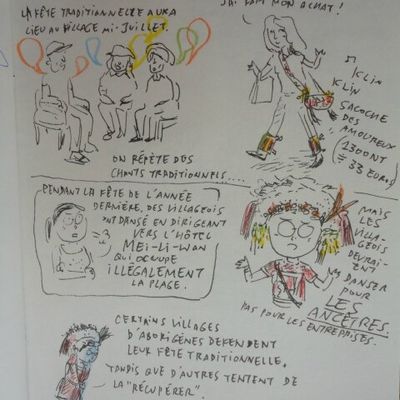 LA FÊTE TRADITIONNELLE AURA
LIEU AU VILLAGE MI-JUILLET.
J'AI FAIT MON ACHAT!
KLIN
KLIN
SACOCHE
DES
AMOUREUX
(1300NT
= 33 EUROS)
ON RÉPÈTE DES
CHANTS TRADITIONNELS....
PENDANT LA FÊTE DE L'ANNÉE
DERNIÈRE, DES VILLAGEOIS
ONT DANSÉ EN DIRIGEANT
VERS L'HÔTEL
MEI-LI-WAN
QUI OCCUPE
ILLÉGALEMENT
LA PLAGE.
MAIS
LES
VILLA-
GEOIS
DEVRAI-
ENT
DANSER
POUR
LES
ANCÊTRES.
PAS POUR LES ENTREPRISES.
CERTAINS VILLAGES
D'ABORIGÈNES DÉFENDENT
LEUR FÊTE TRADITIONNELLE,
TANDIS QUE D'AUTRES TENTENT DE
LA "RÉCUPÉRER".